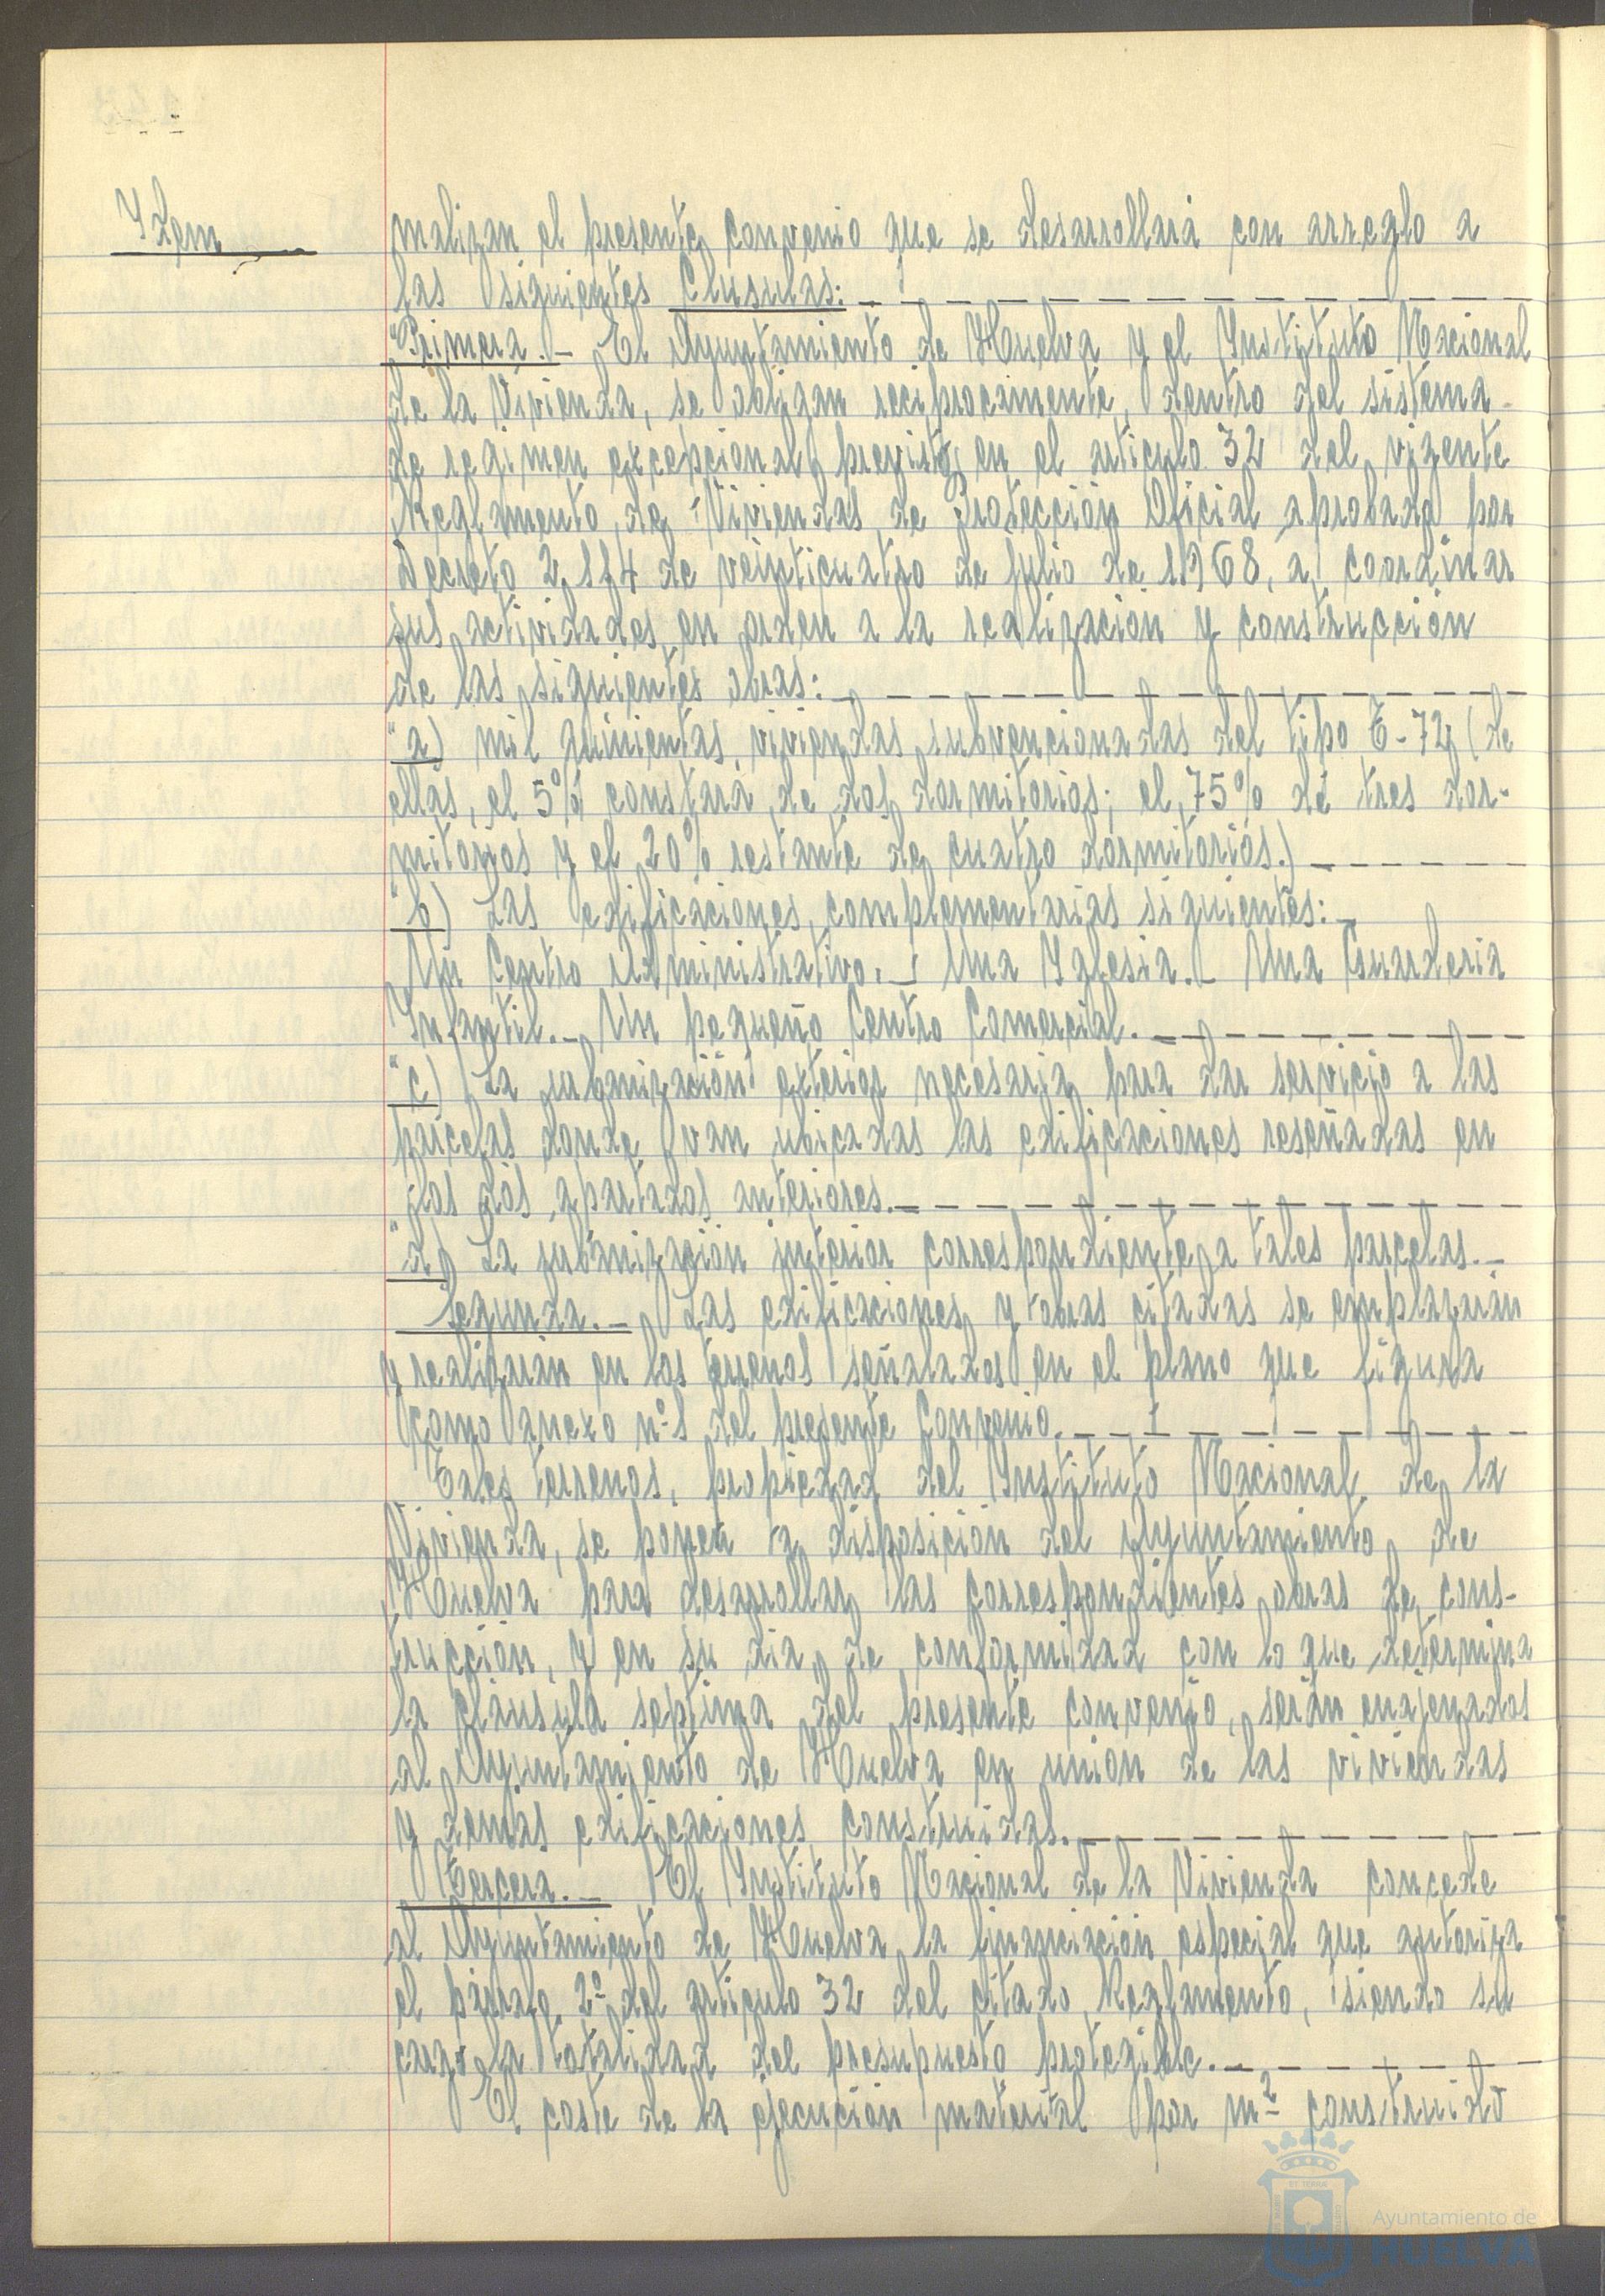 Idem
malizan el presente convenio que se desarrollará con arreglo a
las siguientes Clusulas:
"Primera.- El Ayuntamiento de Huelva y el Instituto Nacional
de la Vivienda, se obligan reciprocamente, dentro del sistema
de regimen excepcional previsto en el articulo 32 del vigente
Reglamento de Viviendas de Protección Oficial aprobado por
Decreto 2.114 de veinticuatro de julio de 1968, a coordinar
sus actividades en orden a la realización y construcción
de las siguientes obras:
"a) mil quinientas viviendas subvencionadas del tipo E-72 (de
ellas, el 5% constará de dos dormitorios; el 75% de tres dor-
mitorios y el 20% restante de cuatro dormitorios.)
"b) Las edificaciones complementarias siguientes:
Un Centro Administrativo.- Una Iglesia.- Una Guardería
Infantil.- Un pequeño Centro Comercial.-
"c) La urbanización exterior necesaria para dar servicio a las
parcelas donde van ubicadas las edificaciones reseñadas en
los dos apartados anteriores.-
"d) La urbanización interior correspondiente a tales parcelas.-
Segunda.- Las edificaciones y obras citadas se emplazarán
y realizarán en los terrenos señalados en el plano que figura
como anexo nº 1 del presente Convenio.
Tales terrenos, propiedad del Instituto Nacional de la
Vivienda, se ponen a disposición del Ayuntamiento de
Huelva para desarrollar las correspondientes obras de cons-
trucción, y en su día, de conformidad con lo que determina
la cláusula septima del presente convenio, serán enajenados
al Ayuntamiento de Huelva en unión de las viviendas
y demás edificaciones construidas.-
Tercera.- El Instituto Nacional de la Vivienda concede
al Ayuntamiento de Huelva la financiación especial que autoriza
el párrafo 2º del artículo 32 del citado Reglamento, siendo su
la totalidad del presupuesto protegible.-
El coste de la ejecución material por m² construido
Ayuntamiento de
HUELVA